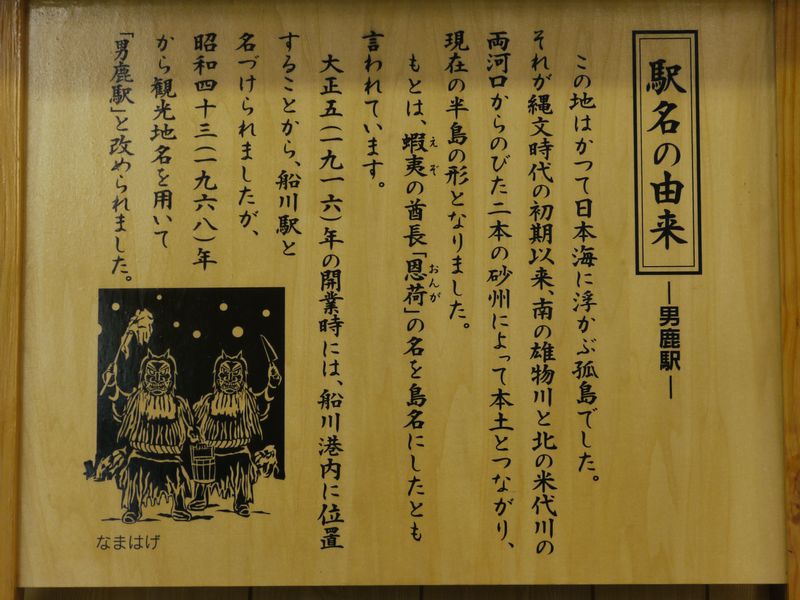 駅名の由来
―男鹿駅―
この地はかつて日本海に浮かぶ孤島でした。
それが縄文時代の初期以来、南の雄物川と北の米代川の
両河口からのびた二本の砂州によって本土とつながり、
現在の半島の形となりました。
もとは、蝦夷の酋長「恩荷」の名を島名にしたとも
えぞ
おんが
言われています。
大正五(一九一六)年の開業時には、船川港内に位置
することから、船川駅と
名づけられましたが、
昭和四十三(一九六八)年
から観光地名を用いて
「男鹿駅」と改められました。
なまはげ